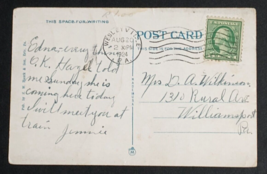 THIS SPACE FOR WRITING
POST CARD
AUG 20
PM
Edna
O.K. Hazel told
me Sunday she is
coming here today
will meet you at
train Jennie
Mrs D. A. Wilkinson
1310 Rural Ave
Williamsport
Pa